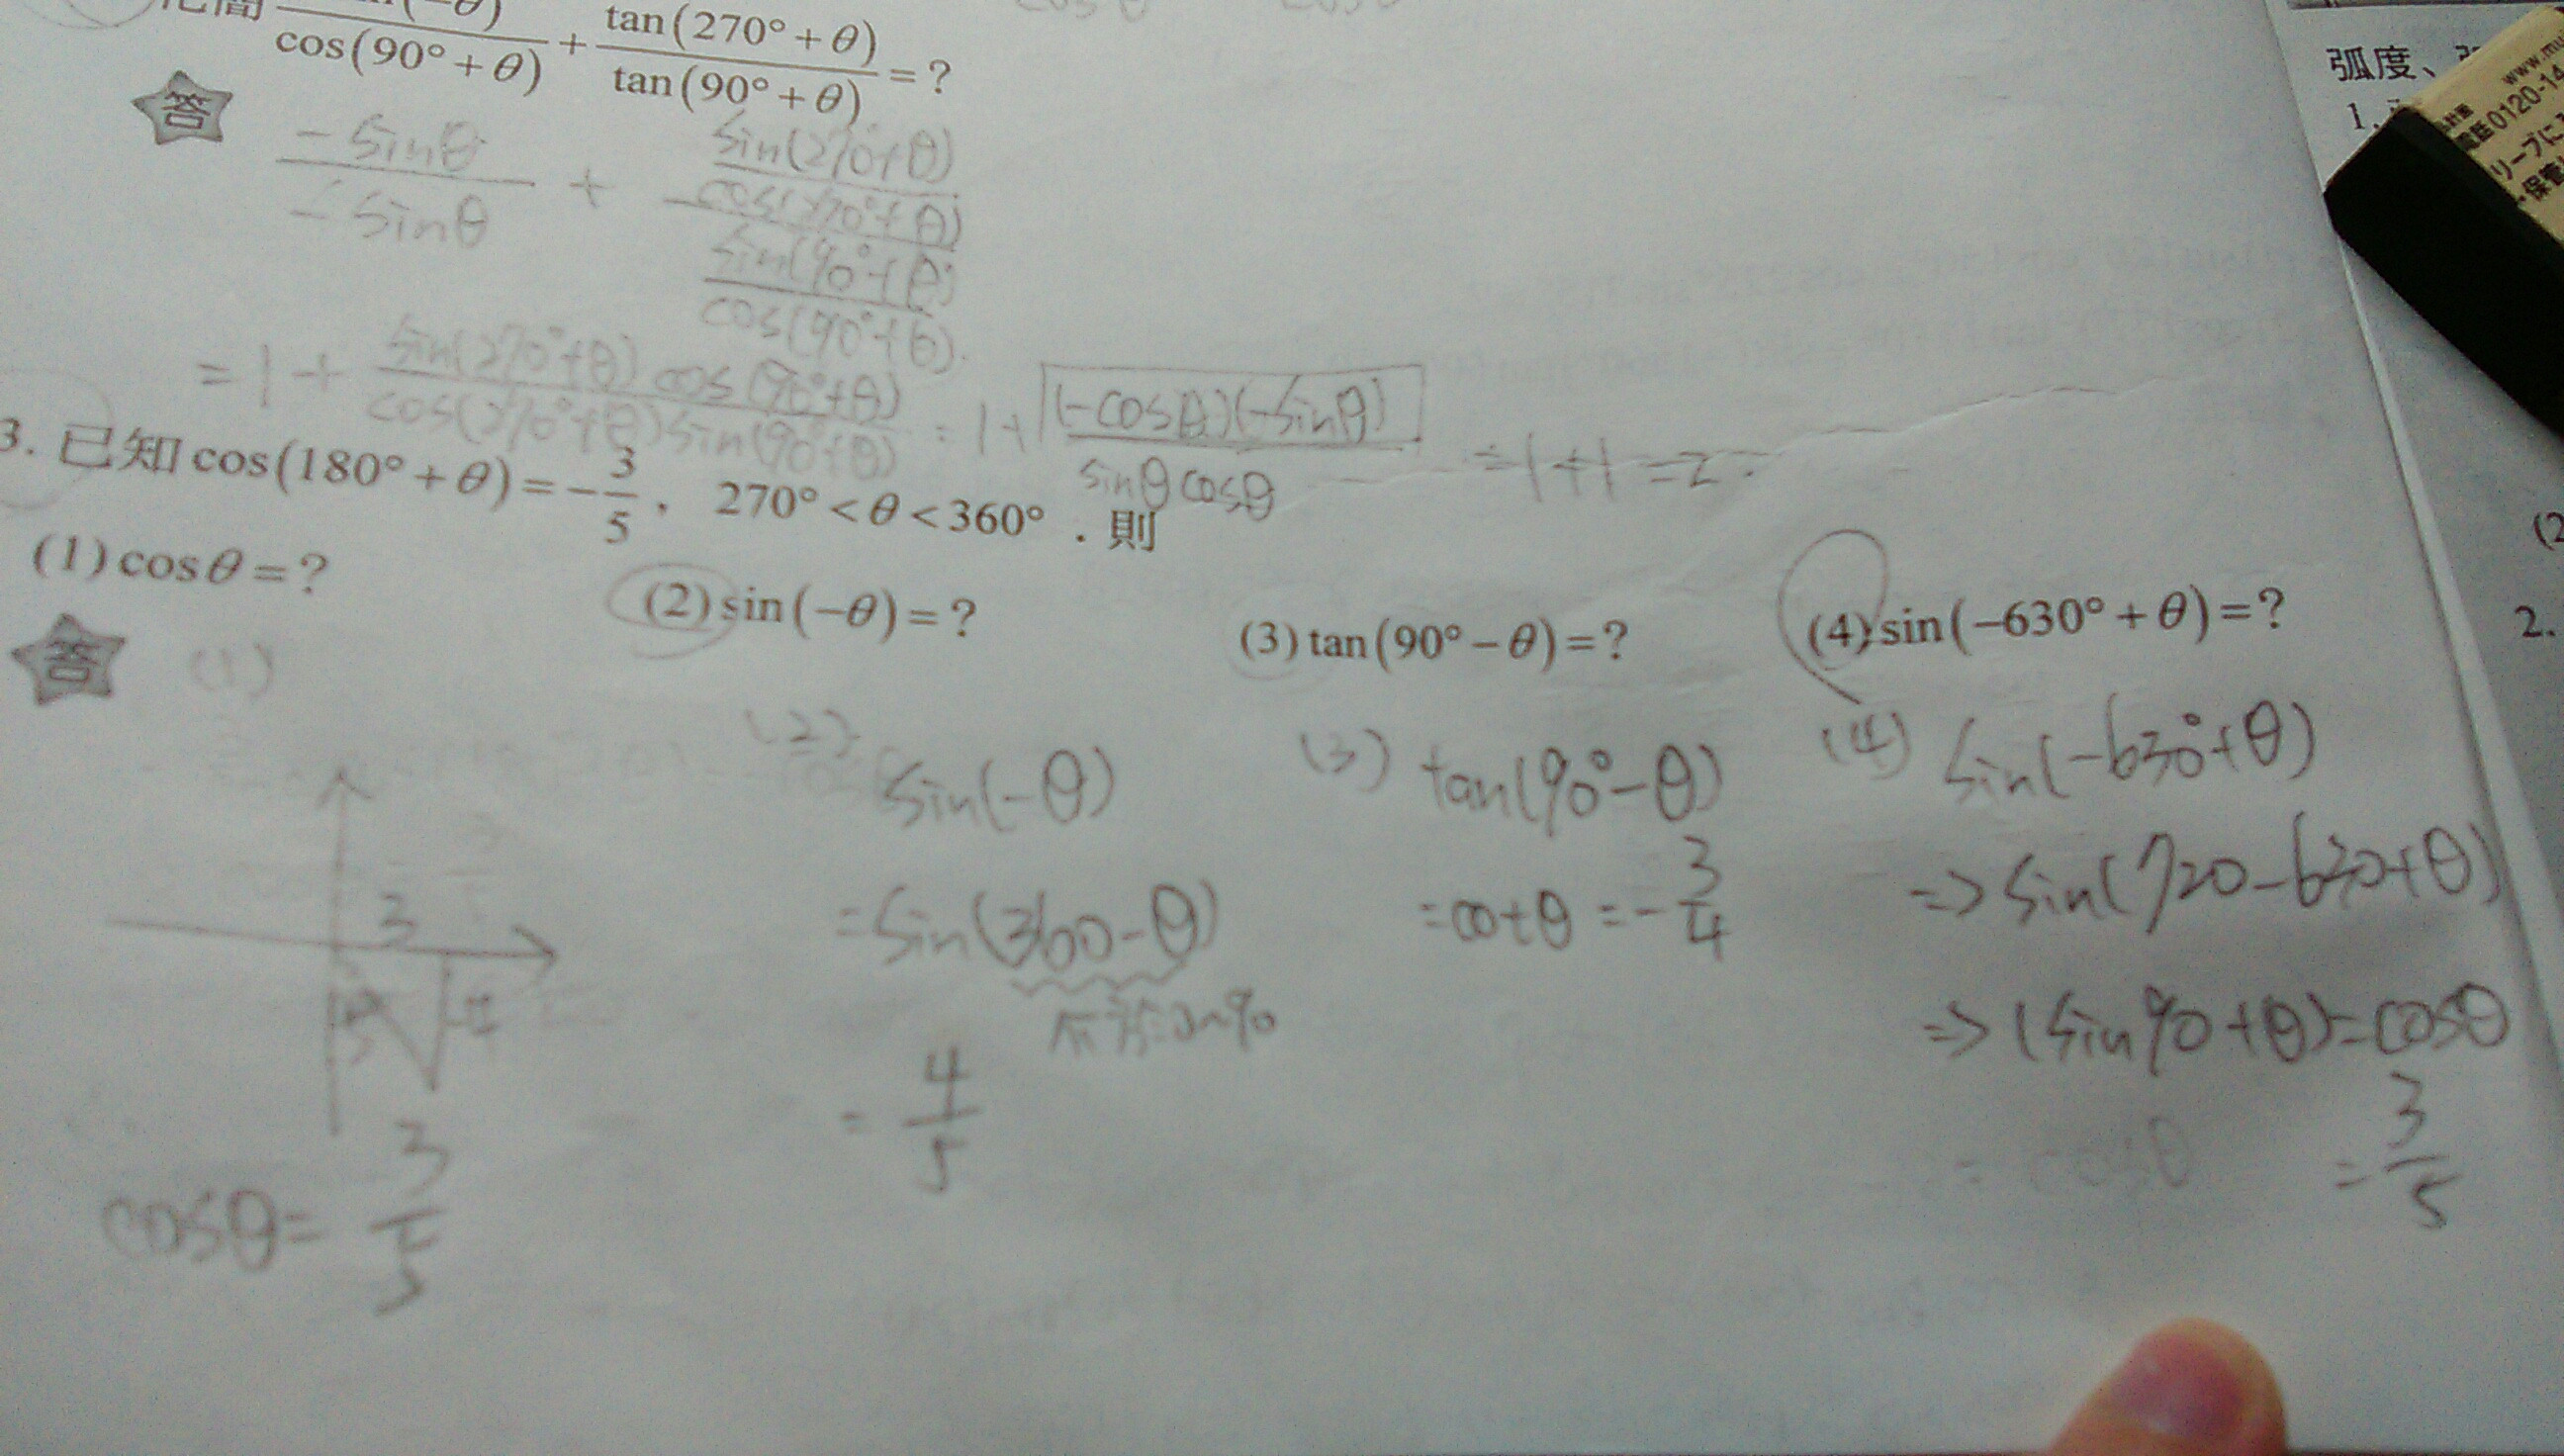 化簡 (−θ) / cos(90°+θ) + tan(270°+θ) / tan(90°+θ) = ?
答
−sinθ / −sinθ + (sin(270°+θ) / cos(270°+θ)) / (sin(90°+θ) / cos(90°+θ))
= 1 + sin(270°+θ)cos(90°+θ) / cos(270°+θ)sin(90°+θ) = 1 + (−cosθ)(−sinθ) / sinθcosθ = 1+1 = 2
3. 已知cos(180°+θ)=−3/5, 270°<θ<360°.則
(1)cosθ=? (2)sin(−θ)=? (3)tan(90°−θ)=? (4)sin(−630°+θ)=?
答
(1)
3
cosθ= 3/5
(2) sin(−θ)
=sin(360−θ)
0~90
= 4/5
(3) tan(90°−θ)
=cotθ=−3/4
(4) sin(−630°+θ)
=> sin(720−630+θ)
=> (sin90+θ)=cosθ
= cosθ
= 3/5
弧度、
1.
(2
2.
www.mu
0120-14
電話
リーブに
・保管